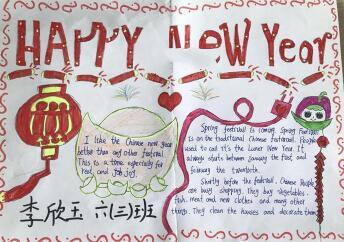 HAPPY NEW Year
I like the Chinese new year
better than any other festival.
This is a time especially for
rest and for joy.
Spring festival is coming. Spring Festival
is on the traditional Chinese festival. People
used to call it's the Lunar New Year. It
always starts between January the first and
february the twentieth.
Shortly before the festival, Chinese People
are busy shopping. They buy vegetables
fish, meat and new clothes and many other
things. They clean the houses and decorate them
李欣玉 六(三)班